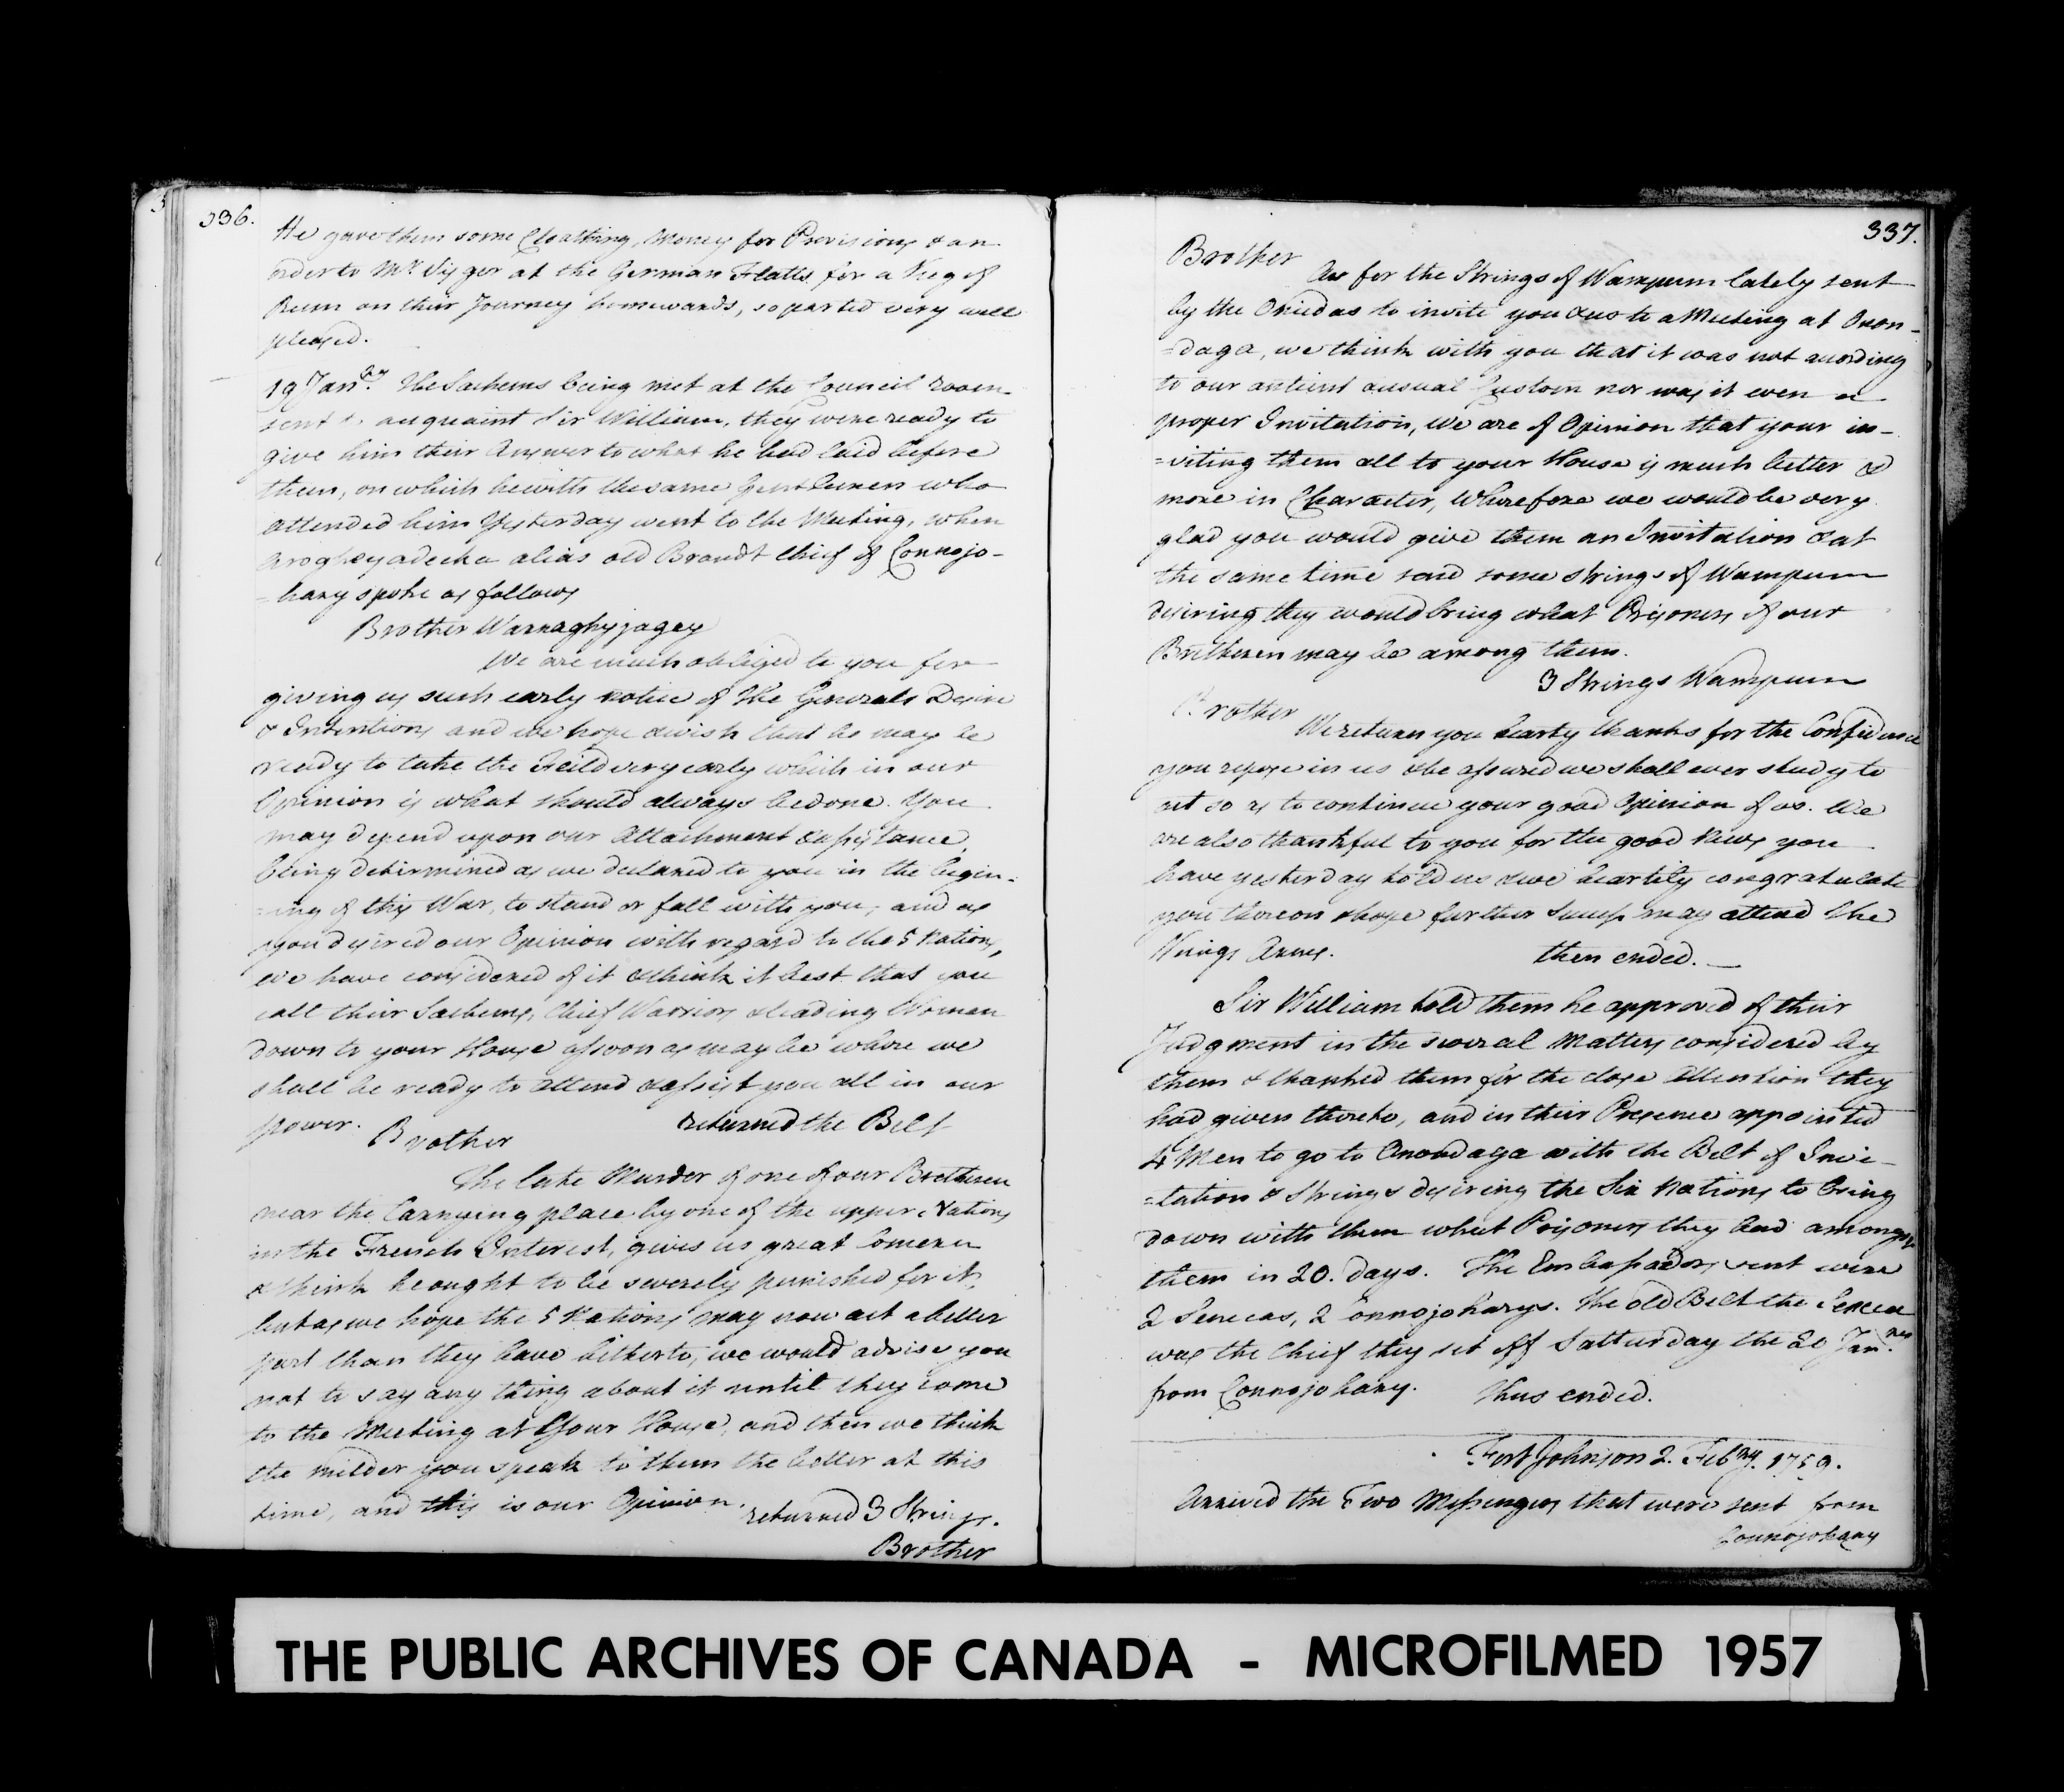 336.
He gave them some Cloathing, Money for Provisions & an
order to Mr. at the German Flatts for a Keg of
Rum on their Journey homewards, so parted very well
pleased.
19 Jany. The Sachems being met at the Council room
sent to acquaint Sir William, they were ready to
give him their Answer to what he had laid before
them, on which he with the same Gentlemen who
attended him Yesterday went to the Meeting, when
Aroghyadecka alias old Brandt Chief of Connojo-
=hary spoke as follows
Brother Warraghyjagey
We are much obliged to you for
giving us such early notice of the Generals Desire
& Intentions and we hope & wish that he may be
ready to take the Feild very early which in our
Opinion is what should always be done. You
may depend upon our Attachment & assistance,
being determined as we declared to you in the begin-
=ing of this War, to stand or fall with you; and as
you desired our Opinion with regard to the 5 Nations,
we have considered of it & think it best that you
call their Sachems, Chief Warriors & leading Women
down to your House assoon as may be where we
shall be ready to attend & assist you all in our
power. returned the Belt
Brother
The late Murder of one of our Bretheren
near the Carrying place by one of the upper Nations
in the French Interest, gives us great Concern
& think he ought to be severely punished for it,
but as we hope the 5 Nations may now act a better
part than they have hitherto, we would advise you
not to say any thing about it until they come
to the Meeting at Your House, and then we think
the milder you speak to them the better at this
time, and this is our Opinion. returned 3 Strings.
Brother
337.
Brother
As for the Strings of Wampum lately sent
by the Oniedas to invite you & us to a Meeting at Onon-
=daga, we think with you that it was not according
to our antient & usual Custom nor was it even a
proper Invitation, We are of Opinion that your in-
=viting them all to your House is much better &
more in Character, Wherefore we would be very
glad you would give them an Invitation & at
the same time send some Strings of Wampum
desiring they would bring what Prisoners of our
Bretheren may be among them.
3 Strings Wampum
Brother
We return you hearty thanks for the Confidence
you repose in us & be assured we shall ever study to
act so as to continue your good Opinion of us. We
are also thankful to you for the good News you
have yesterday told us & we heartily congratulate
you thereon & hope further Success may attend the
Kings Arms. then ended.
Sir William told them he approved of their
Judgment in the several Matters considered by
them & thanked them for the close Attention they
had given thereto, and in their Presence appointed
4 Men to go to Onondaga with the Belt of Invi-
=tation & Strings desiring the Six Nations to bring
down with them what Prisoners they had amongst
them in 20. days. The Embassadors sent were
2 Senecas, 2 Connojoharys. The old Belt the Seneca
was the Chief they set off Satturday the 20 Jany.
from Connojohary. Thus ended.
Fort Johnson 2. Febry. 1759.
Arrived the Two Messengers that were sent from
Connojohary
THE PUBLIC ARCHIVES OF CANADA - MICROFILMED 1957